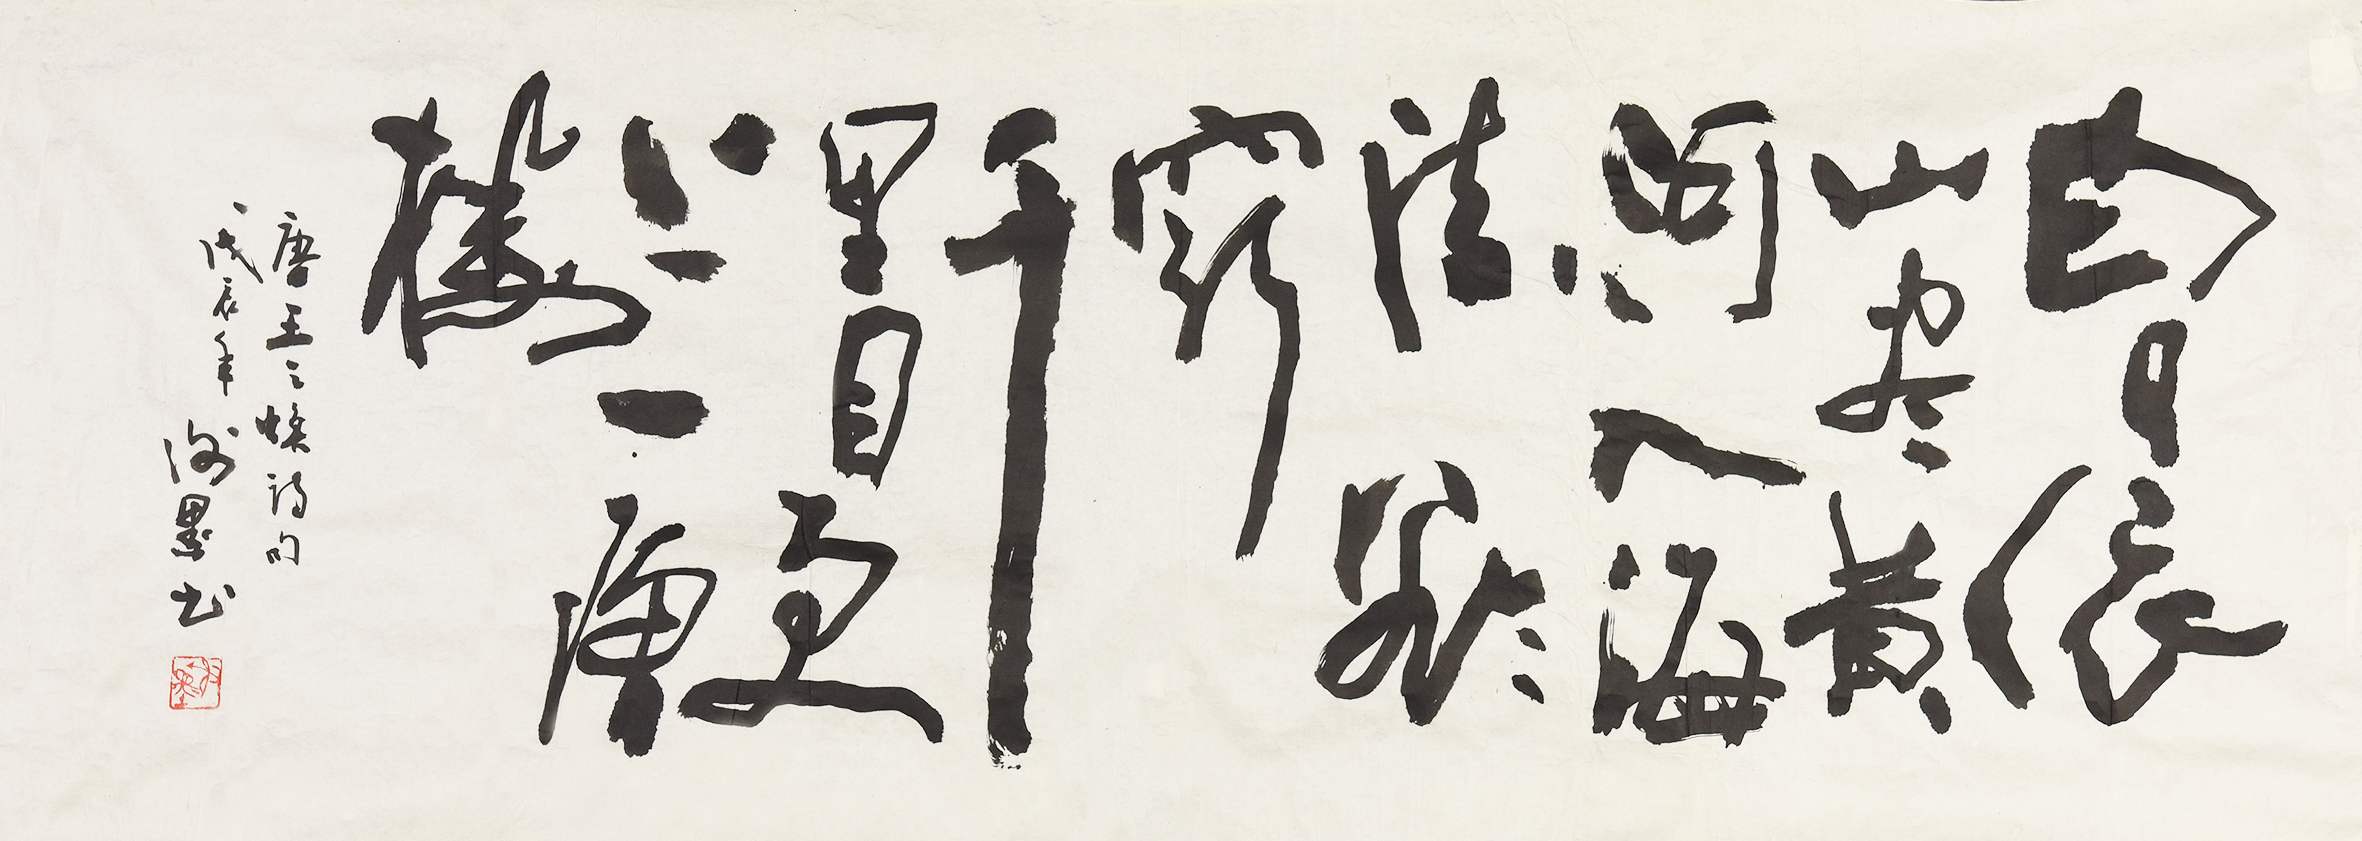 白日依
山尽黄
河入海
流欲
窮
千
里目更
上一層
樓
唐王之焕诗句
戊辰年 墨书